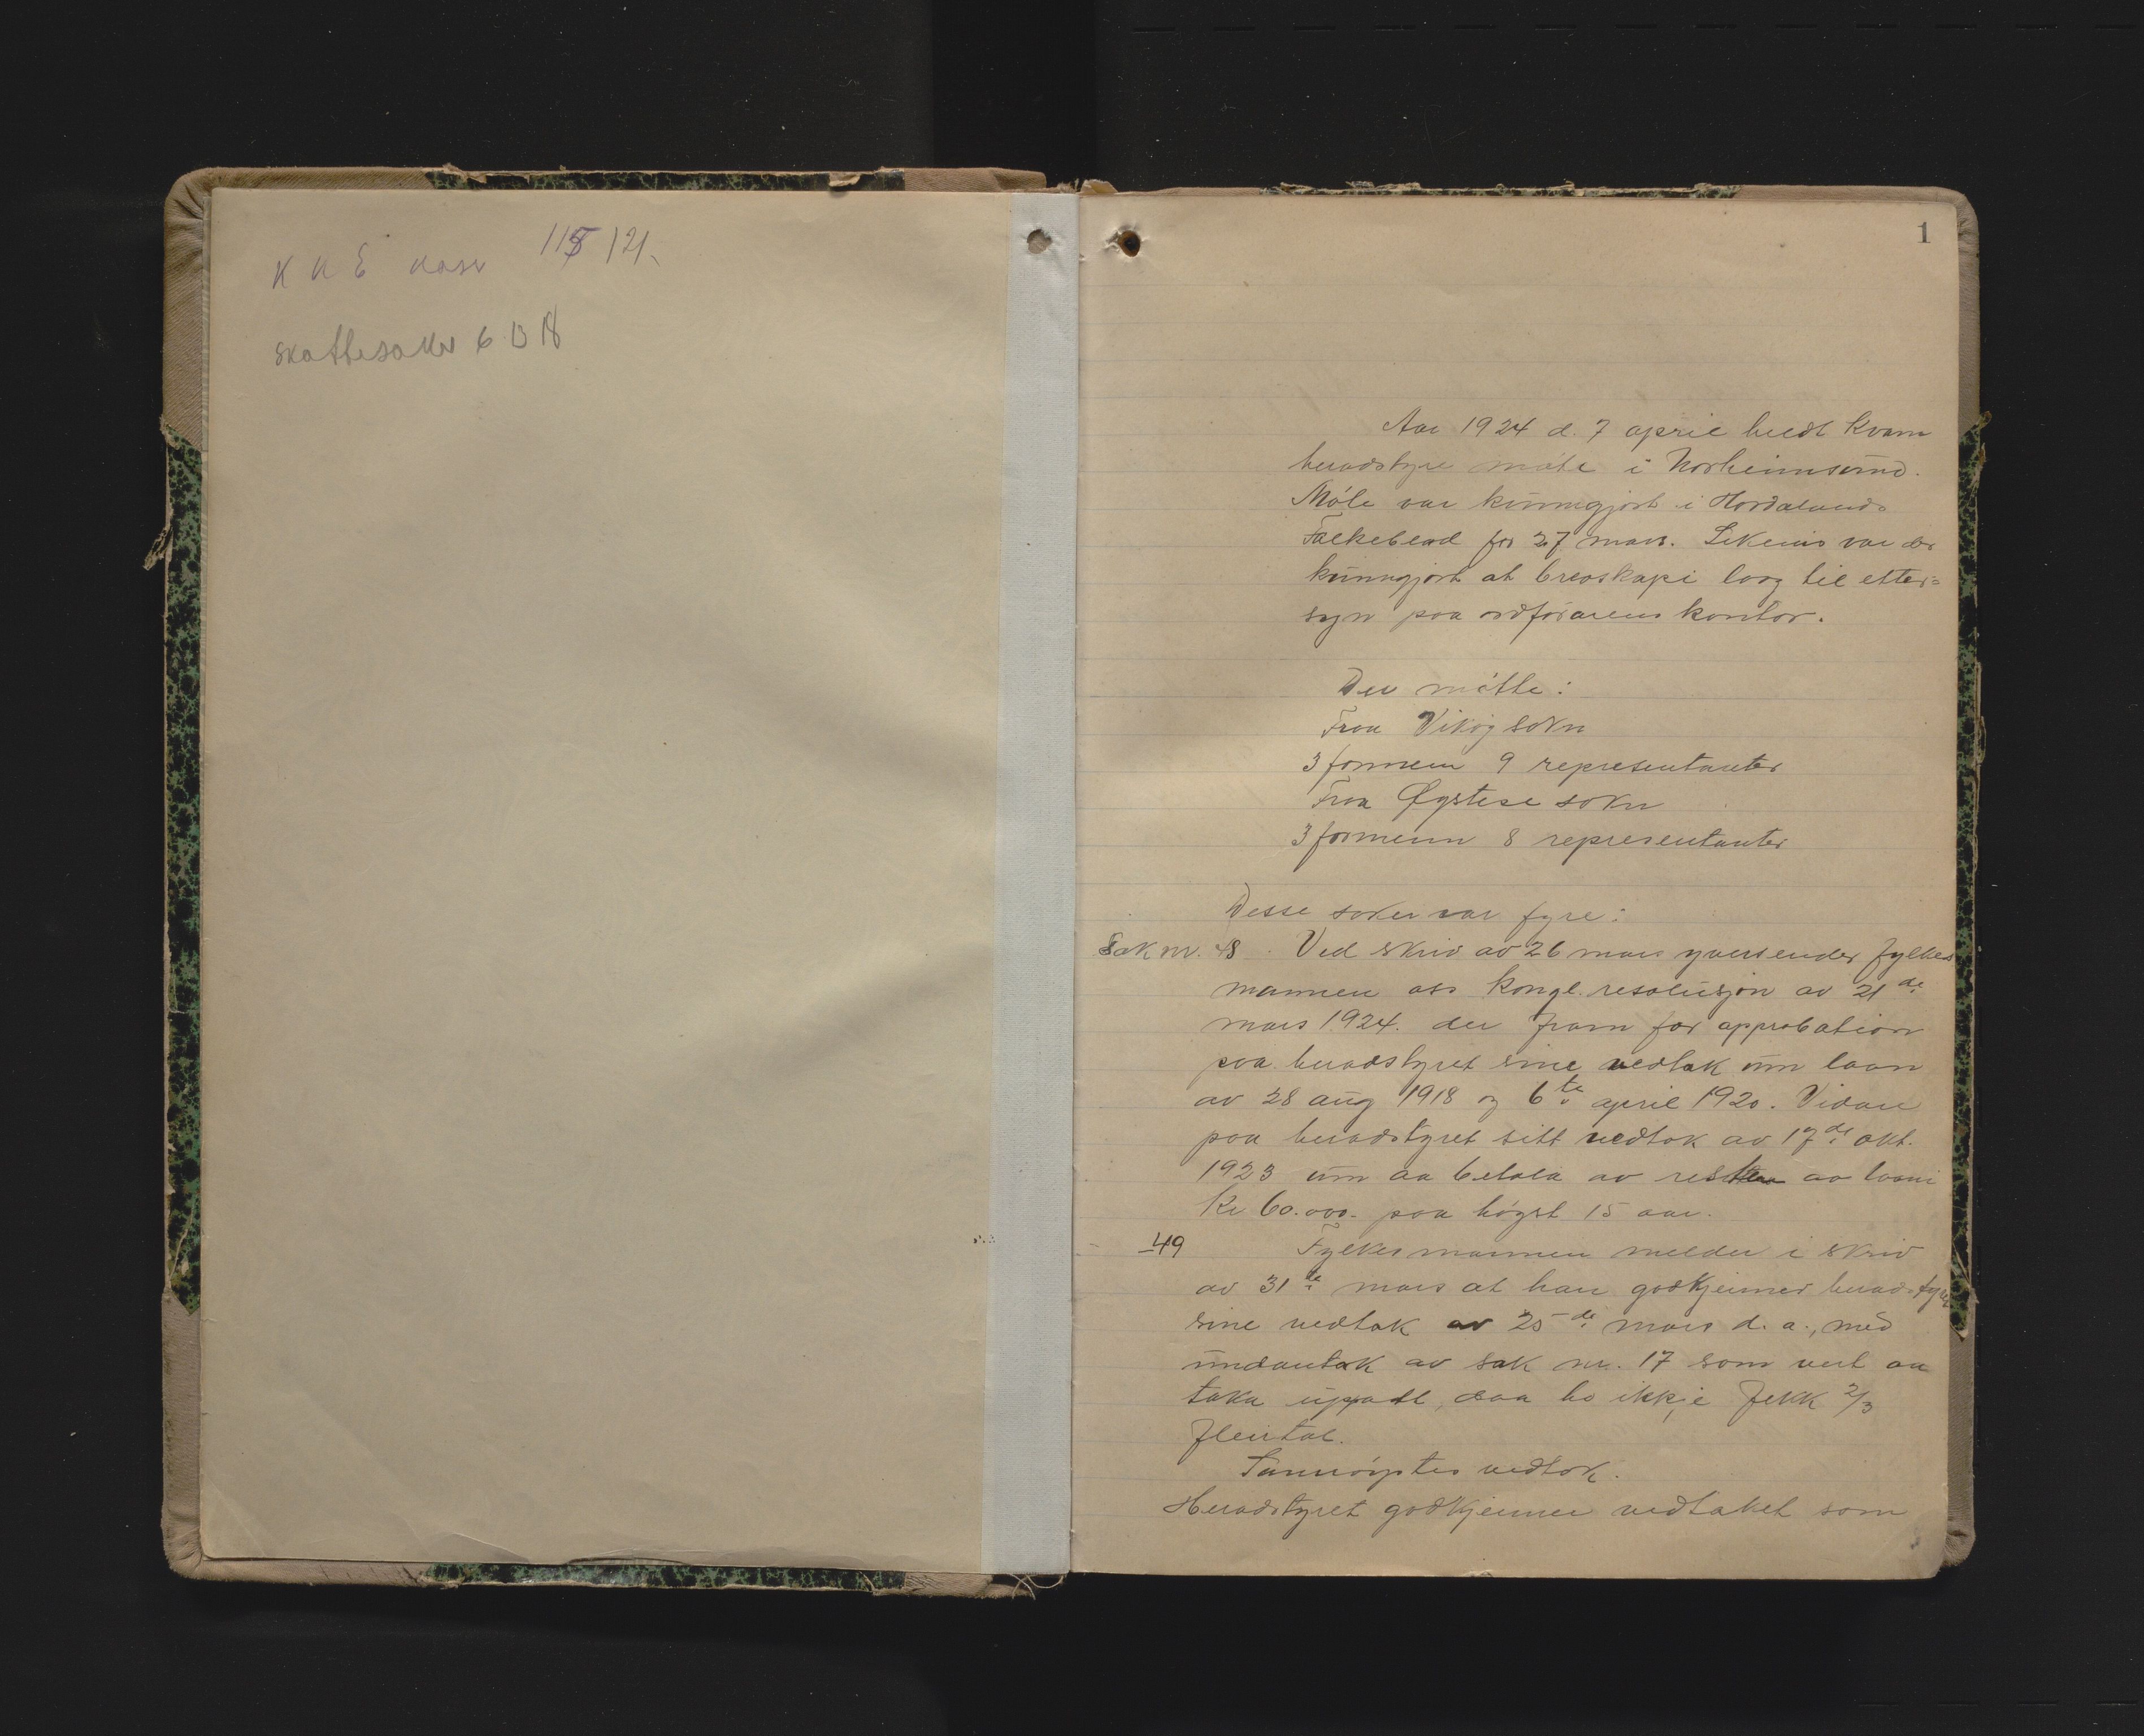 K K E 115 121
Skattesaker 6 13 18
1
Aar 1924 d. 7 april heldt Kvam
heradstyre møte i Norheimsund.
Møte var kunngjort i Hordalands
Folkeblad for 27 mars. Likeins var der
kunngjort at brevskapi laag til etter=
syn paa ordførarens kontor.
Der møtte:
Fraa Vikøy sokn
3 formenn 9 representantar
Fraa Øystese sokn
3 formenn 8 representantar
Desse saker var fyre:
Sak nr. 48 Ved skriv av 26 mars yversender fylkes
mannen oss kongl. resolusjon av 21de
mars 1924. der fram for approbation
paa heradstyret sine vedtak um laan
av 28 aug 1918 og 6te april 1920. Vidare
paa heradstyret sitt vedtak av 17de okt.
1923 um aa betala av resten av laani
Kr 60.000.- paa høgst 15 aar.
49 Fylkesmannen melder i skriv
av 31te mars at han godkjenner heradstyret
sine vedtak av 25de mars d. a., med
undantak av sak nr. 17 som vert aa
taka uppatt, daa ho ikkje fekk 2/3
fleirtal.
Samrøystes vedtok.
Heradstyret godkjenner vedtaket som